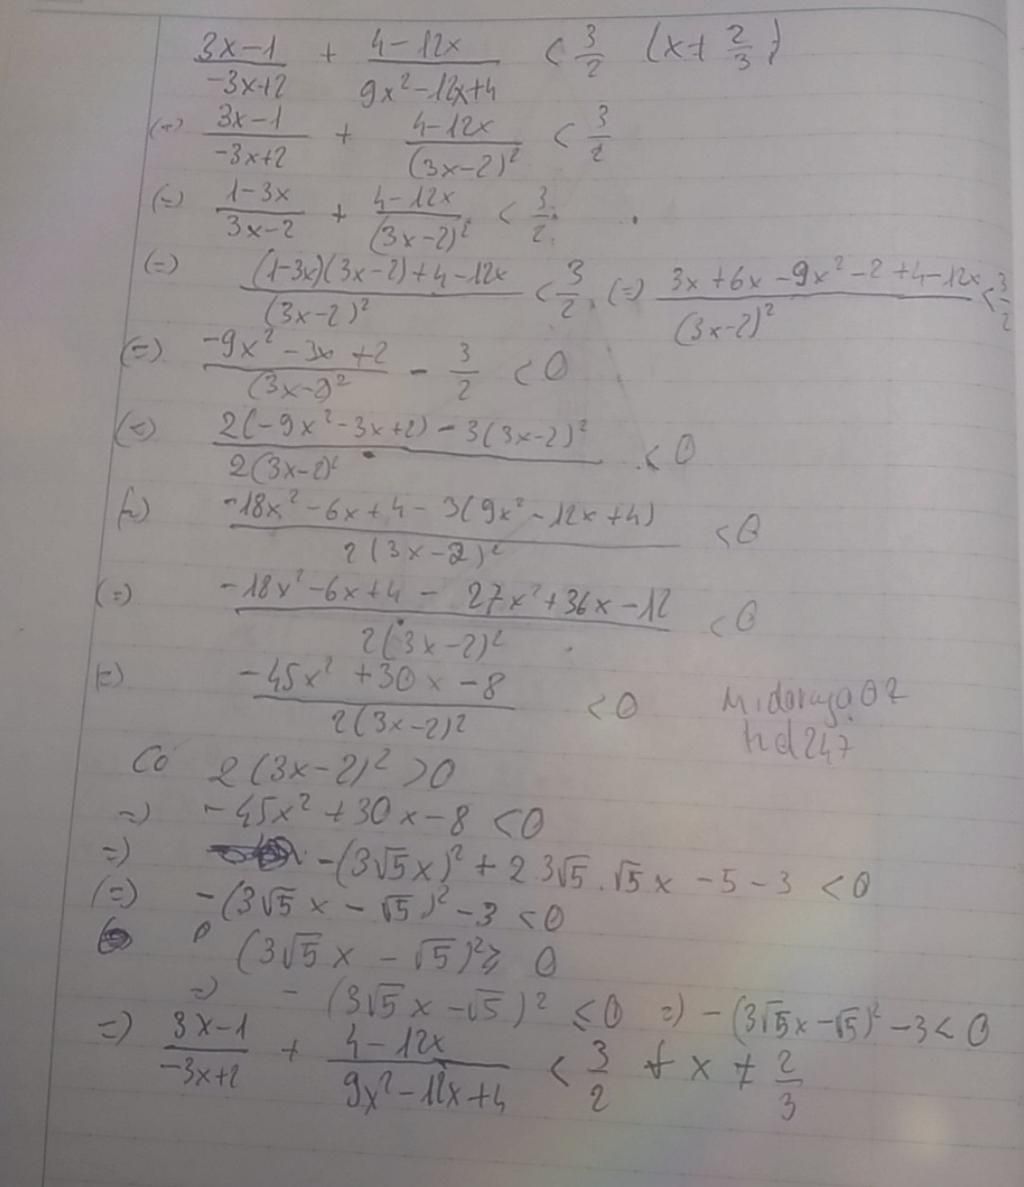 (3x-1)/(-3x+2) + (4-12x)/(9x²-12x+4) < 3/2 (x≠ 2/3)
(=) (3x-1)/(-3x+2) + (4-12x)/(3x-2)² < 3/2
(=) (1-3x)/(3x-2) + (4-12x)/(3x-2)² < 3/2
(=) ((1-3x)(3x-2)+4-12x)/(3x-2)² < 3/2 (=) (3x+6x-9x²-2+4-12x)/(3x-2)² < 3/2
(=) (-9x²-3x+2)/(3x-2)² - 3/2 < 0
(=) (2(-9x²-3x+2)-3(3x-2)²)/(2(3x-2)²) < 0
(=) (-18x²-6x+4-3(9x²-12x+4))/(2(3x-2)²) < 0
(=) (-18x²-6x+4-27x²+36x-12)/(2(3x-2)²) < 0
(=) (-45x²+30x-8)/(2(3x-2)²) < 0
Midoruya02
hd247
Có 2(3x-2)² >0
=) -45x²+30x-8 <0
=) -(3√5x)²+2.3√5.√5x-5-3 <0
(=) -(3√5x-√5)²-3 <0
(3√5x-√5)² ≥ 0
=) -(3√5x-√5)² ≤0 =) -(3√5x-√5)²-3<0
=) (3x-1)/(-3x+2) + (4-12x)/(9x²-12x+4) < 3/2 ∀ x ≠ 2/3